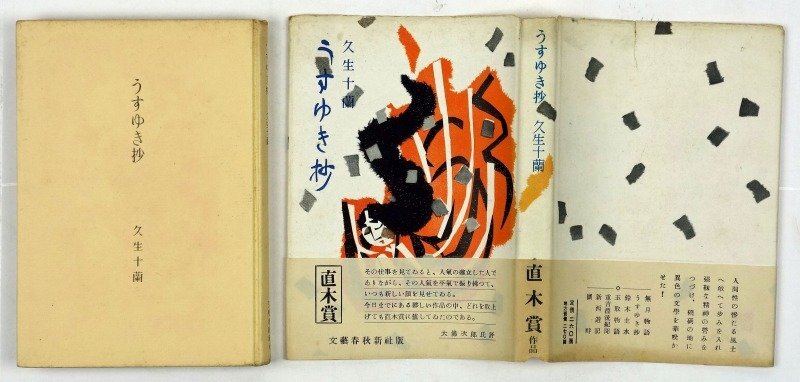 うすゆき抄
久生十蘭
久生十蘭
うすゆき抄
直木賞
その仕事を見てゐると、人氣の確立した人で
ありながら、その人氣を平氣で振り捨つて、
いつも新しい顔を見せてゐる。
今日までにある夥しい作品の中、どれを取上
げても直木賞に値してゐたのである。
大佛次郎氏評
文藝春秋新社版
うすゆき抄 久生十蘭
直木賞
作品
定價 二六〇圓
地方賣價 二七〇圓
無月物語
うすゆき抄
鈴木主水
玉取物語
重吉漂流紀聞
新西遊記
人間性の惨たる風土
へ敢へて歩みを入れ
強靱な精神の營みを
つづけ、硝煙の地に
異色の文學を華咲か
せた！